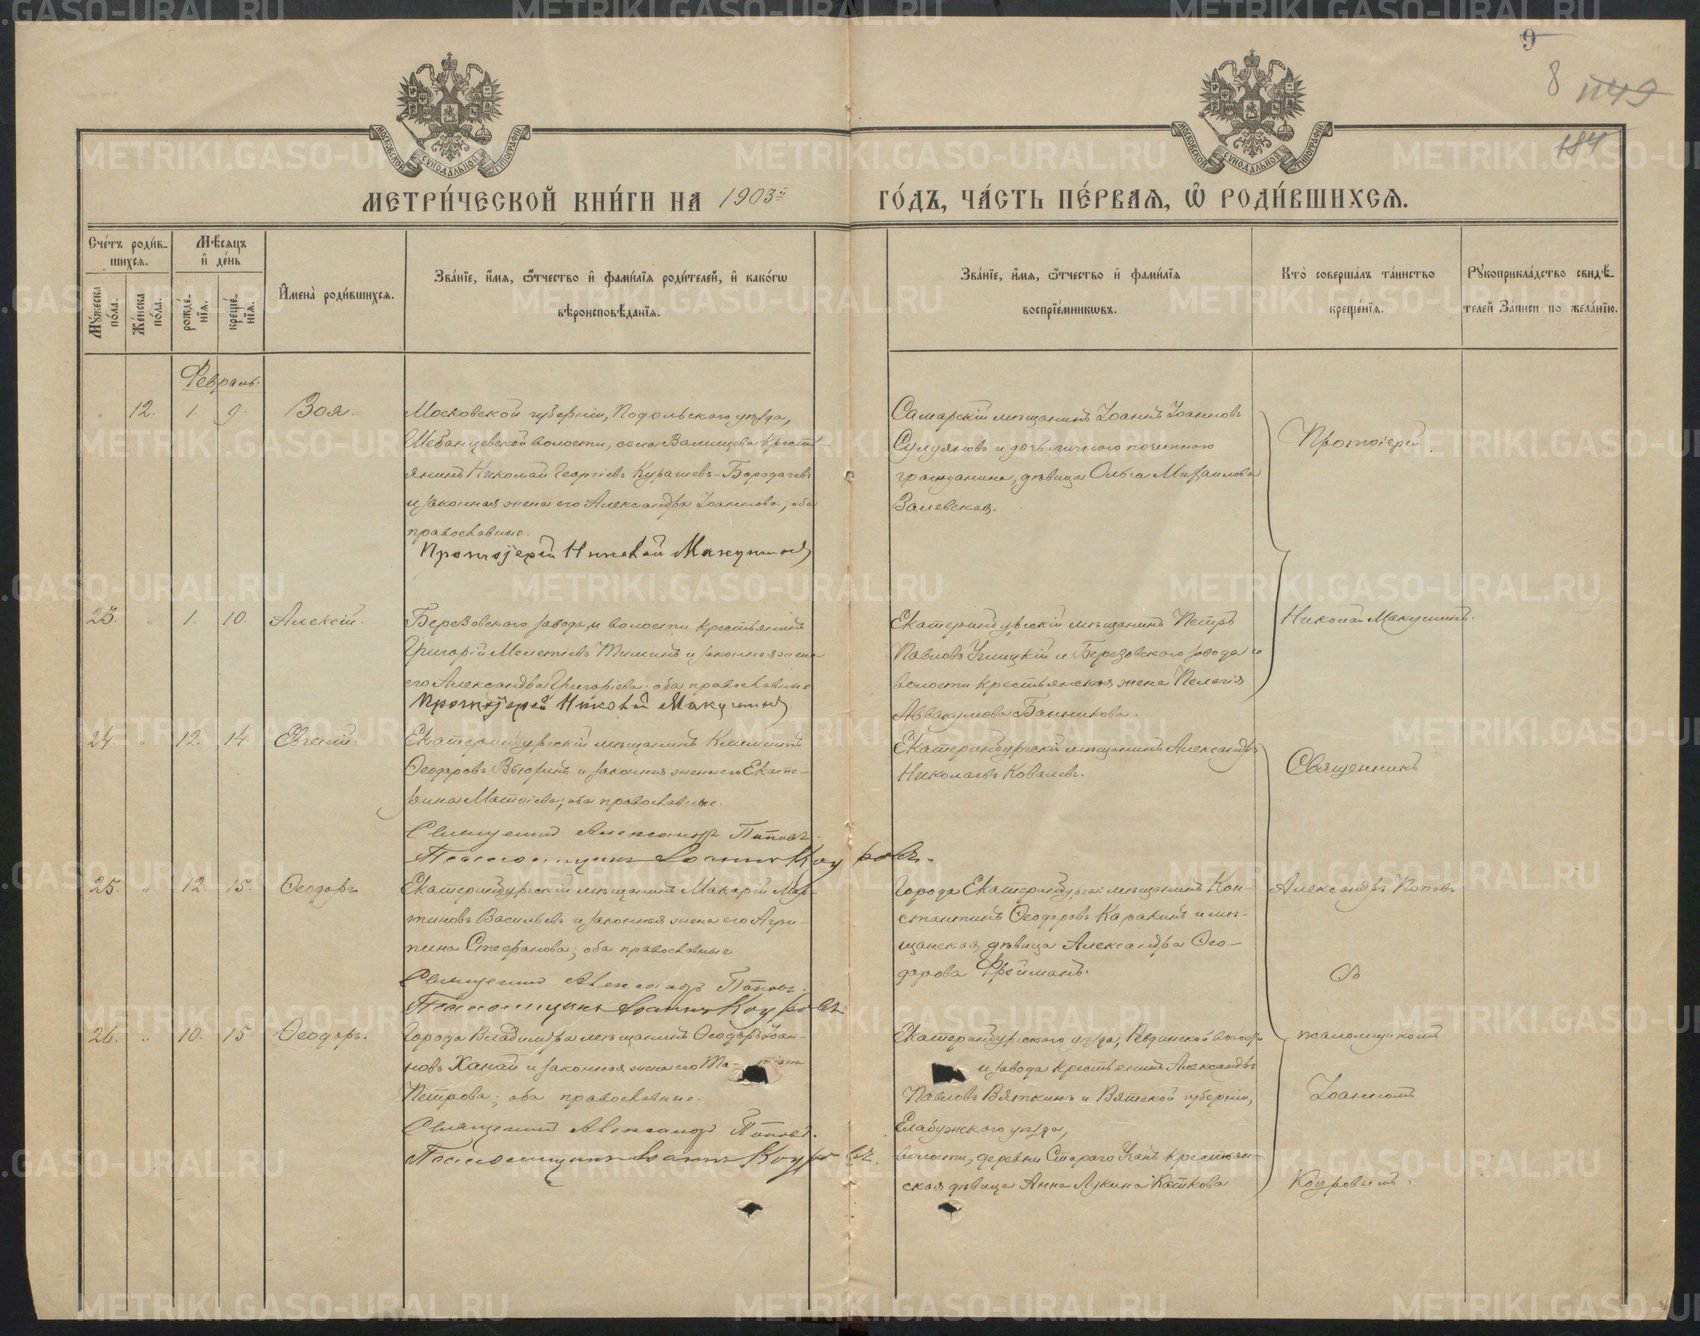 9
8 1149
184
МОСКОВСКОЙ СѴНОДАЛЬНОЙ ТИПОГРАФІИ
МОСКОВСКОЙ СѴНОДАЛЬНОЙ ТИПОГРАФІИ
МЕТРИ́ЧЕСКОЙ КНИ́ГИ НА 1903й ГО́ДЪ, ЧА́СТЬ ПЕ́РВАѦ, Ѡ РОДИ́ВШИХСѦ.
Сче́тъ роди́в-
шихсѧ.
Мѹ́жеска по́ла.
Же́нска по́ла.
Мѣ́сѧцъ и де́нь
рожде́нїѧ.
креще́нїѧ.
И҆мена̀ роди́вшихсѧ.
Зва́нїе, и҆́мѧ, ѻ҆́тчество и҆ фами́лїѧ роди́телей, и҆ како́гѡ
вѣроисповѣ́данїѧ.
Зва́нїе, и҆́мѧ, ѻ҆́тчество и҆ фами́лїѧ
воспрїе́мникѡвъ.
Кто̀ соверша́лъ та́инство
креще́нїѧ.
Рѹкоприкла́дство свидѣ́-
телей за́писи по жела́нїю.
Февраль.
" 12. 1. 9. Зоя.
Московской губерніи, Подольскаго уѣзда,
Шебанцевской волости, села Валищева крестьянинъ Николай Георгіевъ Курашевъ-Бородачевъ
и законная жена его Александра Іоаннова; оба
православные.
Протоіерей Николай Макушинъ
Самарскій мѣщанинъ Іоаннъ Іоанновъ
и дочь личнаго почетнаго
гражданина, дѣвица Ольга Михаилова
Залевская.
Протоіерей
23. " 1. 10. Алексій.
Березовскаго завода и волости крестьянинъ
Григорій Мелетіевъ и законная жена
его Александра Григоріева: оба православные
Протоіерей Николай Макушинъ
Екатеринбургскій мѣщанинъ Петръ
Павловъ Углицкій и Березовскаго завода и
волости крестьянская жена Пелагія
Аввакумова Банникова.
Николай Макушинъ.
24. " 12. 14 Евгеній.
Екатеринбургскій мѣщанинъ Климентъ
Ѳеодоровъ и законная жена его Екате-
рина Матѳіева; оба православные.
Священникъ Александръ Поповъ.
Псаломщикъ Іоаннъ Коуровъ.
Екатеринбургскій мѣщанинъ Александръ
Николаевъ Ковалевъ.
Священникъ
25. " 12. 15. Ѳеодоръ
Екатеринбургскій мѣщанинъ Макарій Мар-
тиновъ Васильевъ и законная жена его Агри-
пина Стефанова; оба православные
Священникъ Александръ Поповъ.
Псаломщикъ Іоаннъ Коуровъ
Города Екатеринбурга мѣщанинъ Кон-
стантинъ Ѳеодоровъ Каракинъ и мѣ-
щанская дѣвица Александра Ѳео-
дорова Фрейманъ.
Александръ Поповъ
съ
26. " 10. 15. Ѳеодоръ.
Города Владиміра мѣщанинъ Ѳеодоръ Іоан-
новъ Ханай и законная жена его Та-тіана
Петрова; оба православные.
Священникъ Александръ Поповъ.
Псаломщикъ Іоаннъ Коуровъ.
Екатеринбургскаго уѣзда, Ревдинской волости
и завода крестьянинъ Александръ
Павловъ Вяткинъ и Вятской губерніи,
Елабужскаго уѣзда,
волости, деревни Стараго крестьян-
ская дѣвица Анна Лукина Каткова
псаломщикомъ
Іоанномъ
Коуровымъ.